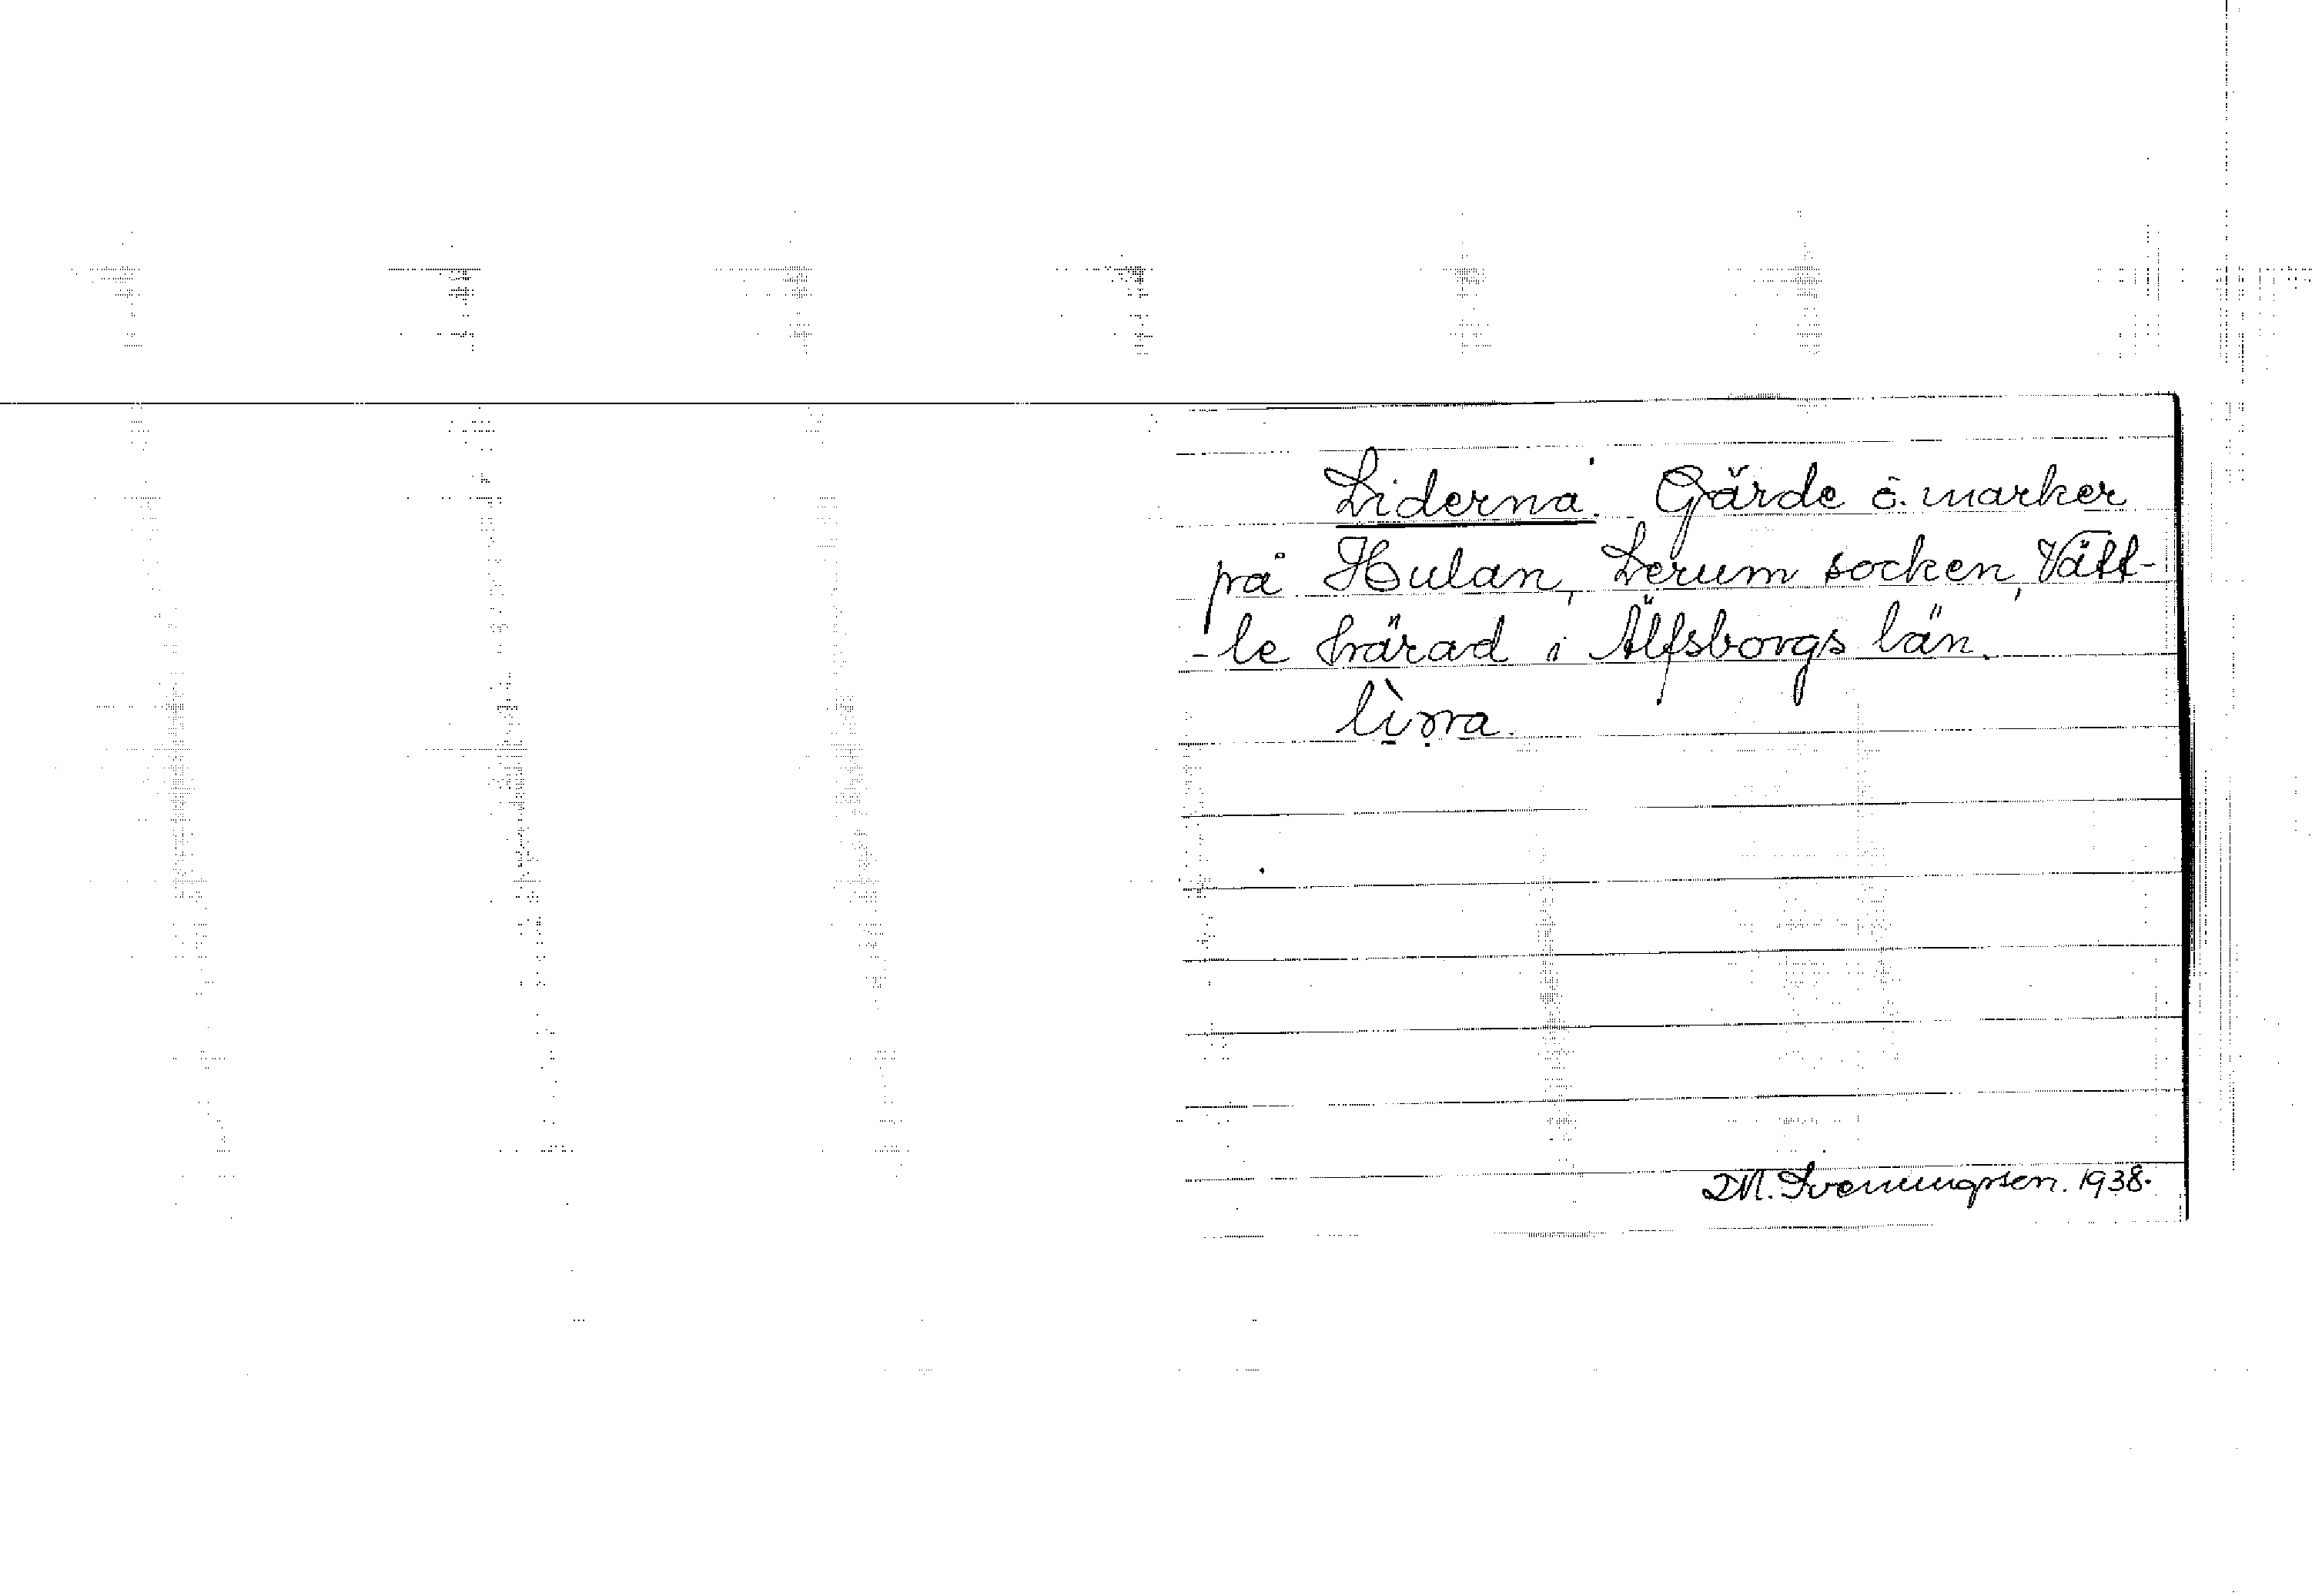 Liderna. Gärde ö. marker
på Hulan, Lerum socken, Vätt-
-le härad i Älfsborgs län.
D.M. Sveningsen. 1938.